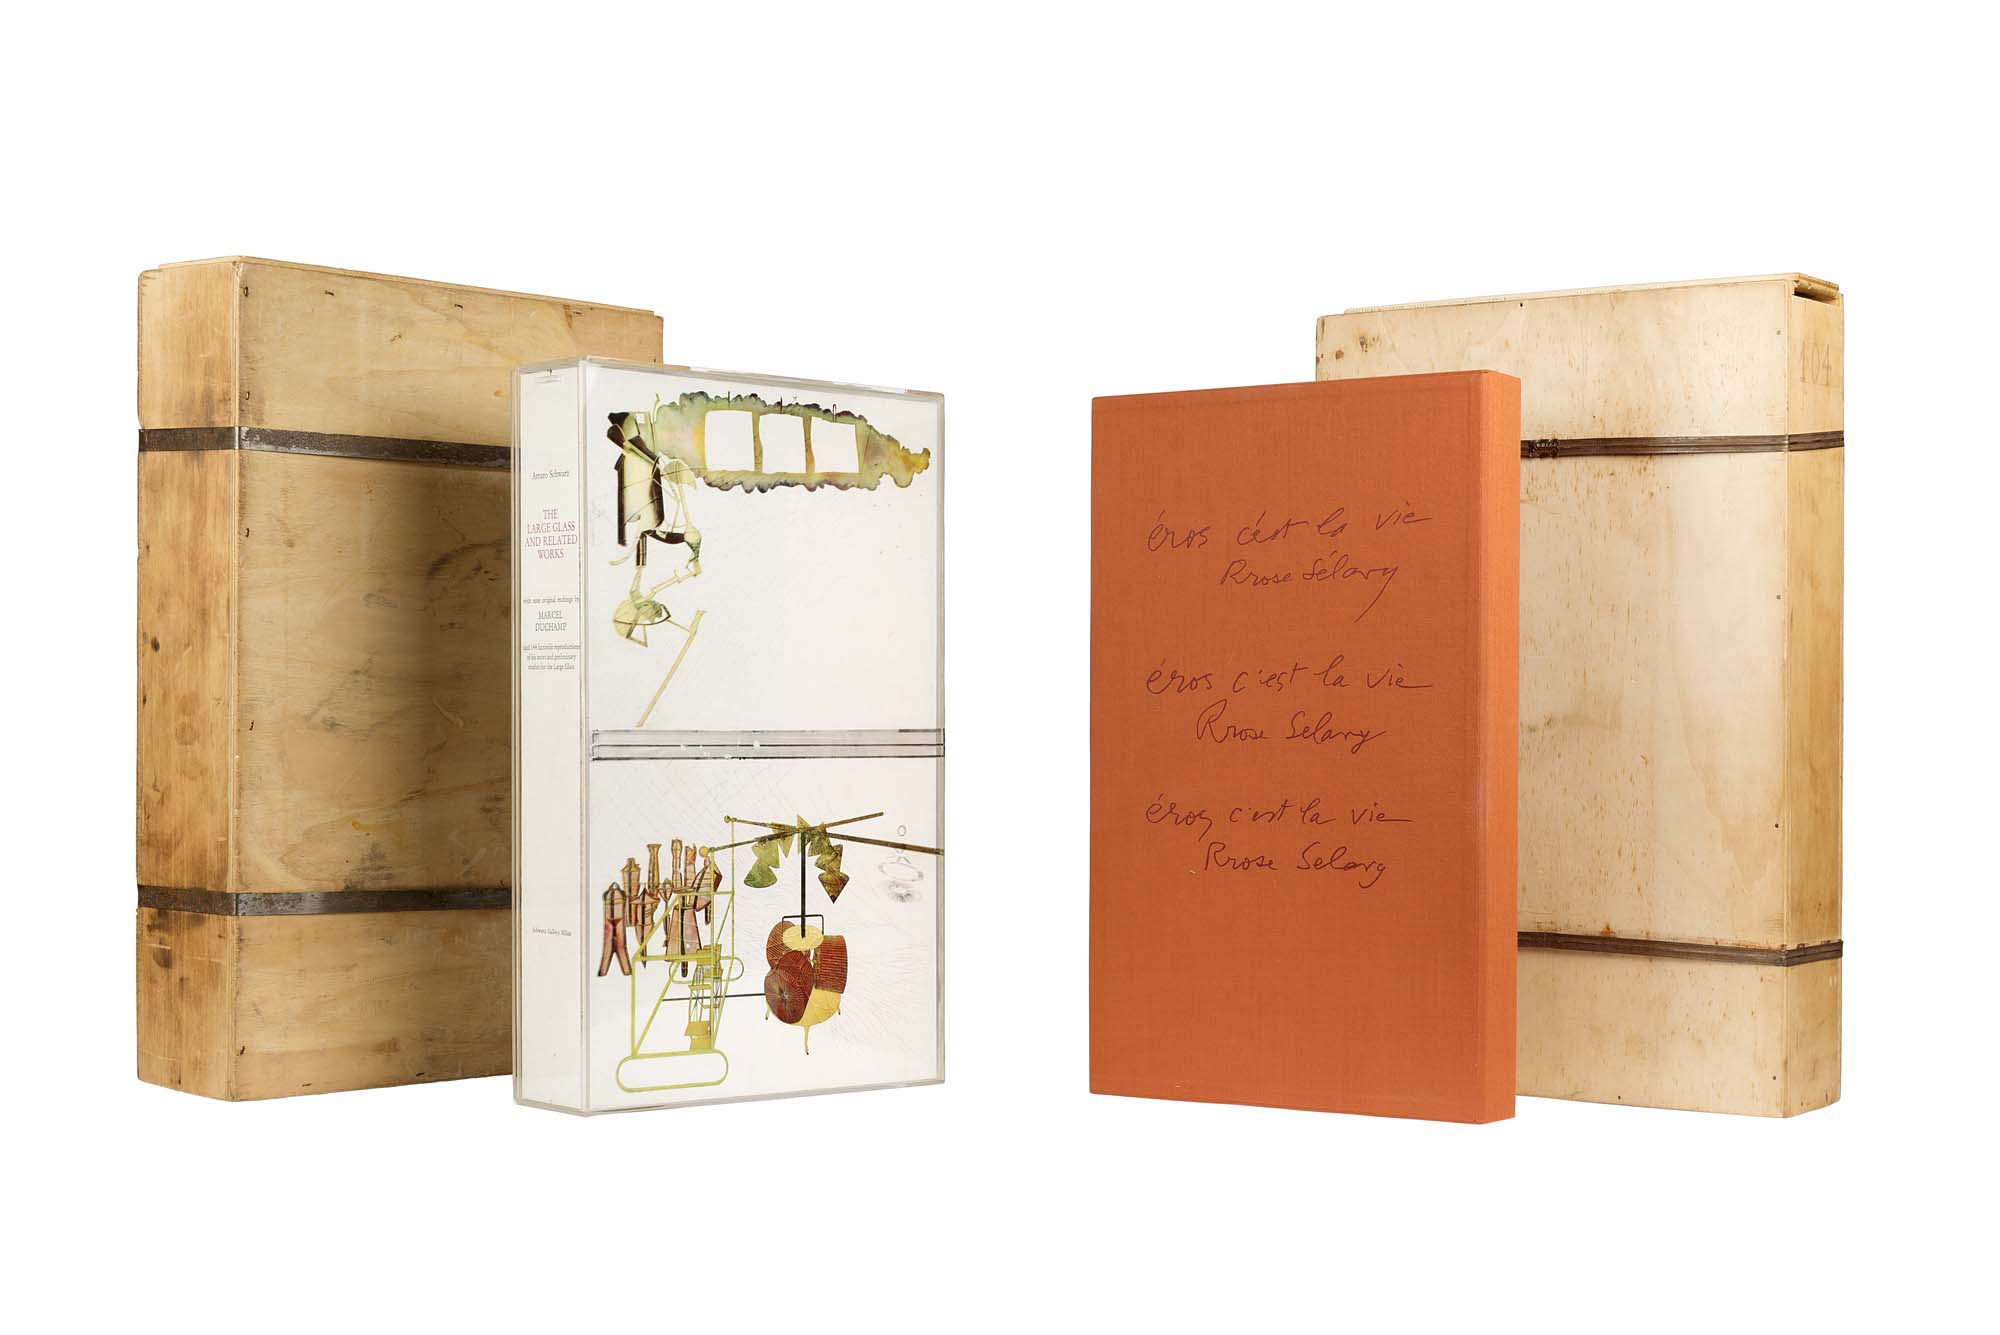 Arturo Schwarz
THE
LARGE GLASS
AND RELATED
WORKS
with nine original etchings by
MARCEL
DUCHAMP
and 144 facsimile reproductions
of his notes and preliminary
studies for the Large Glass
Schwarz Gallery Milan
éros c'est la vie
Rrose Sélavy
éros c'est la vie
Rrose Selavy
éros c'est la vie
Rrose Selavy
104